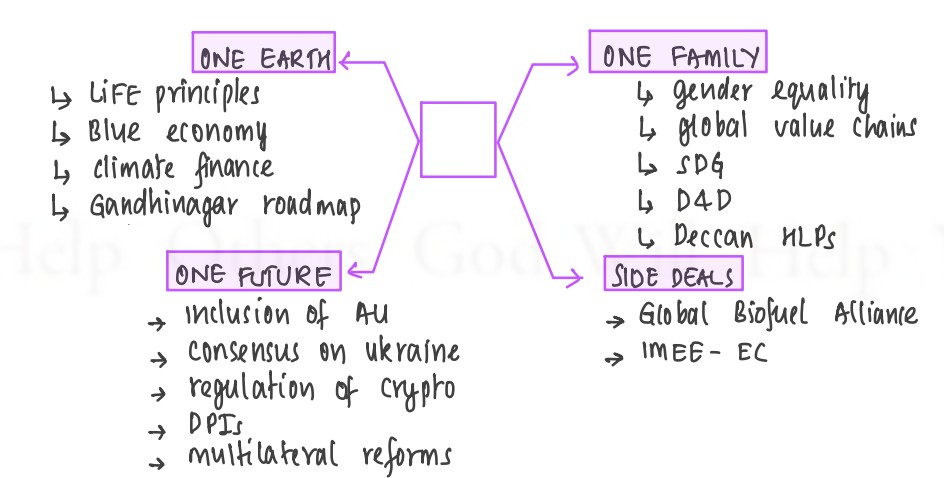 ONE EARTH
↳ LiFE principles
↳ Blue economy
↳ climate finance
↳ Gandhinagar roadmap
ONE FAMILY
↳ gender equality
↳ global value chains
↳ SDG
↳ D4D
↳ Deccan HLPs
ONE FUTURE
→ inclusion of AU
→ consensus on ukraine
→ regulation of crypto
→ DPIs
→ multilateral reforms
SIDE DEALS
→ Global Biofuel Alliance
→ IMEE - EC
Help Others God Will Help